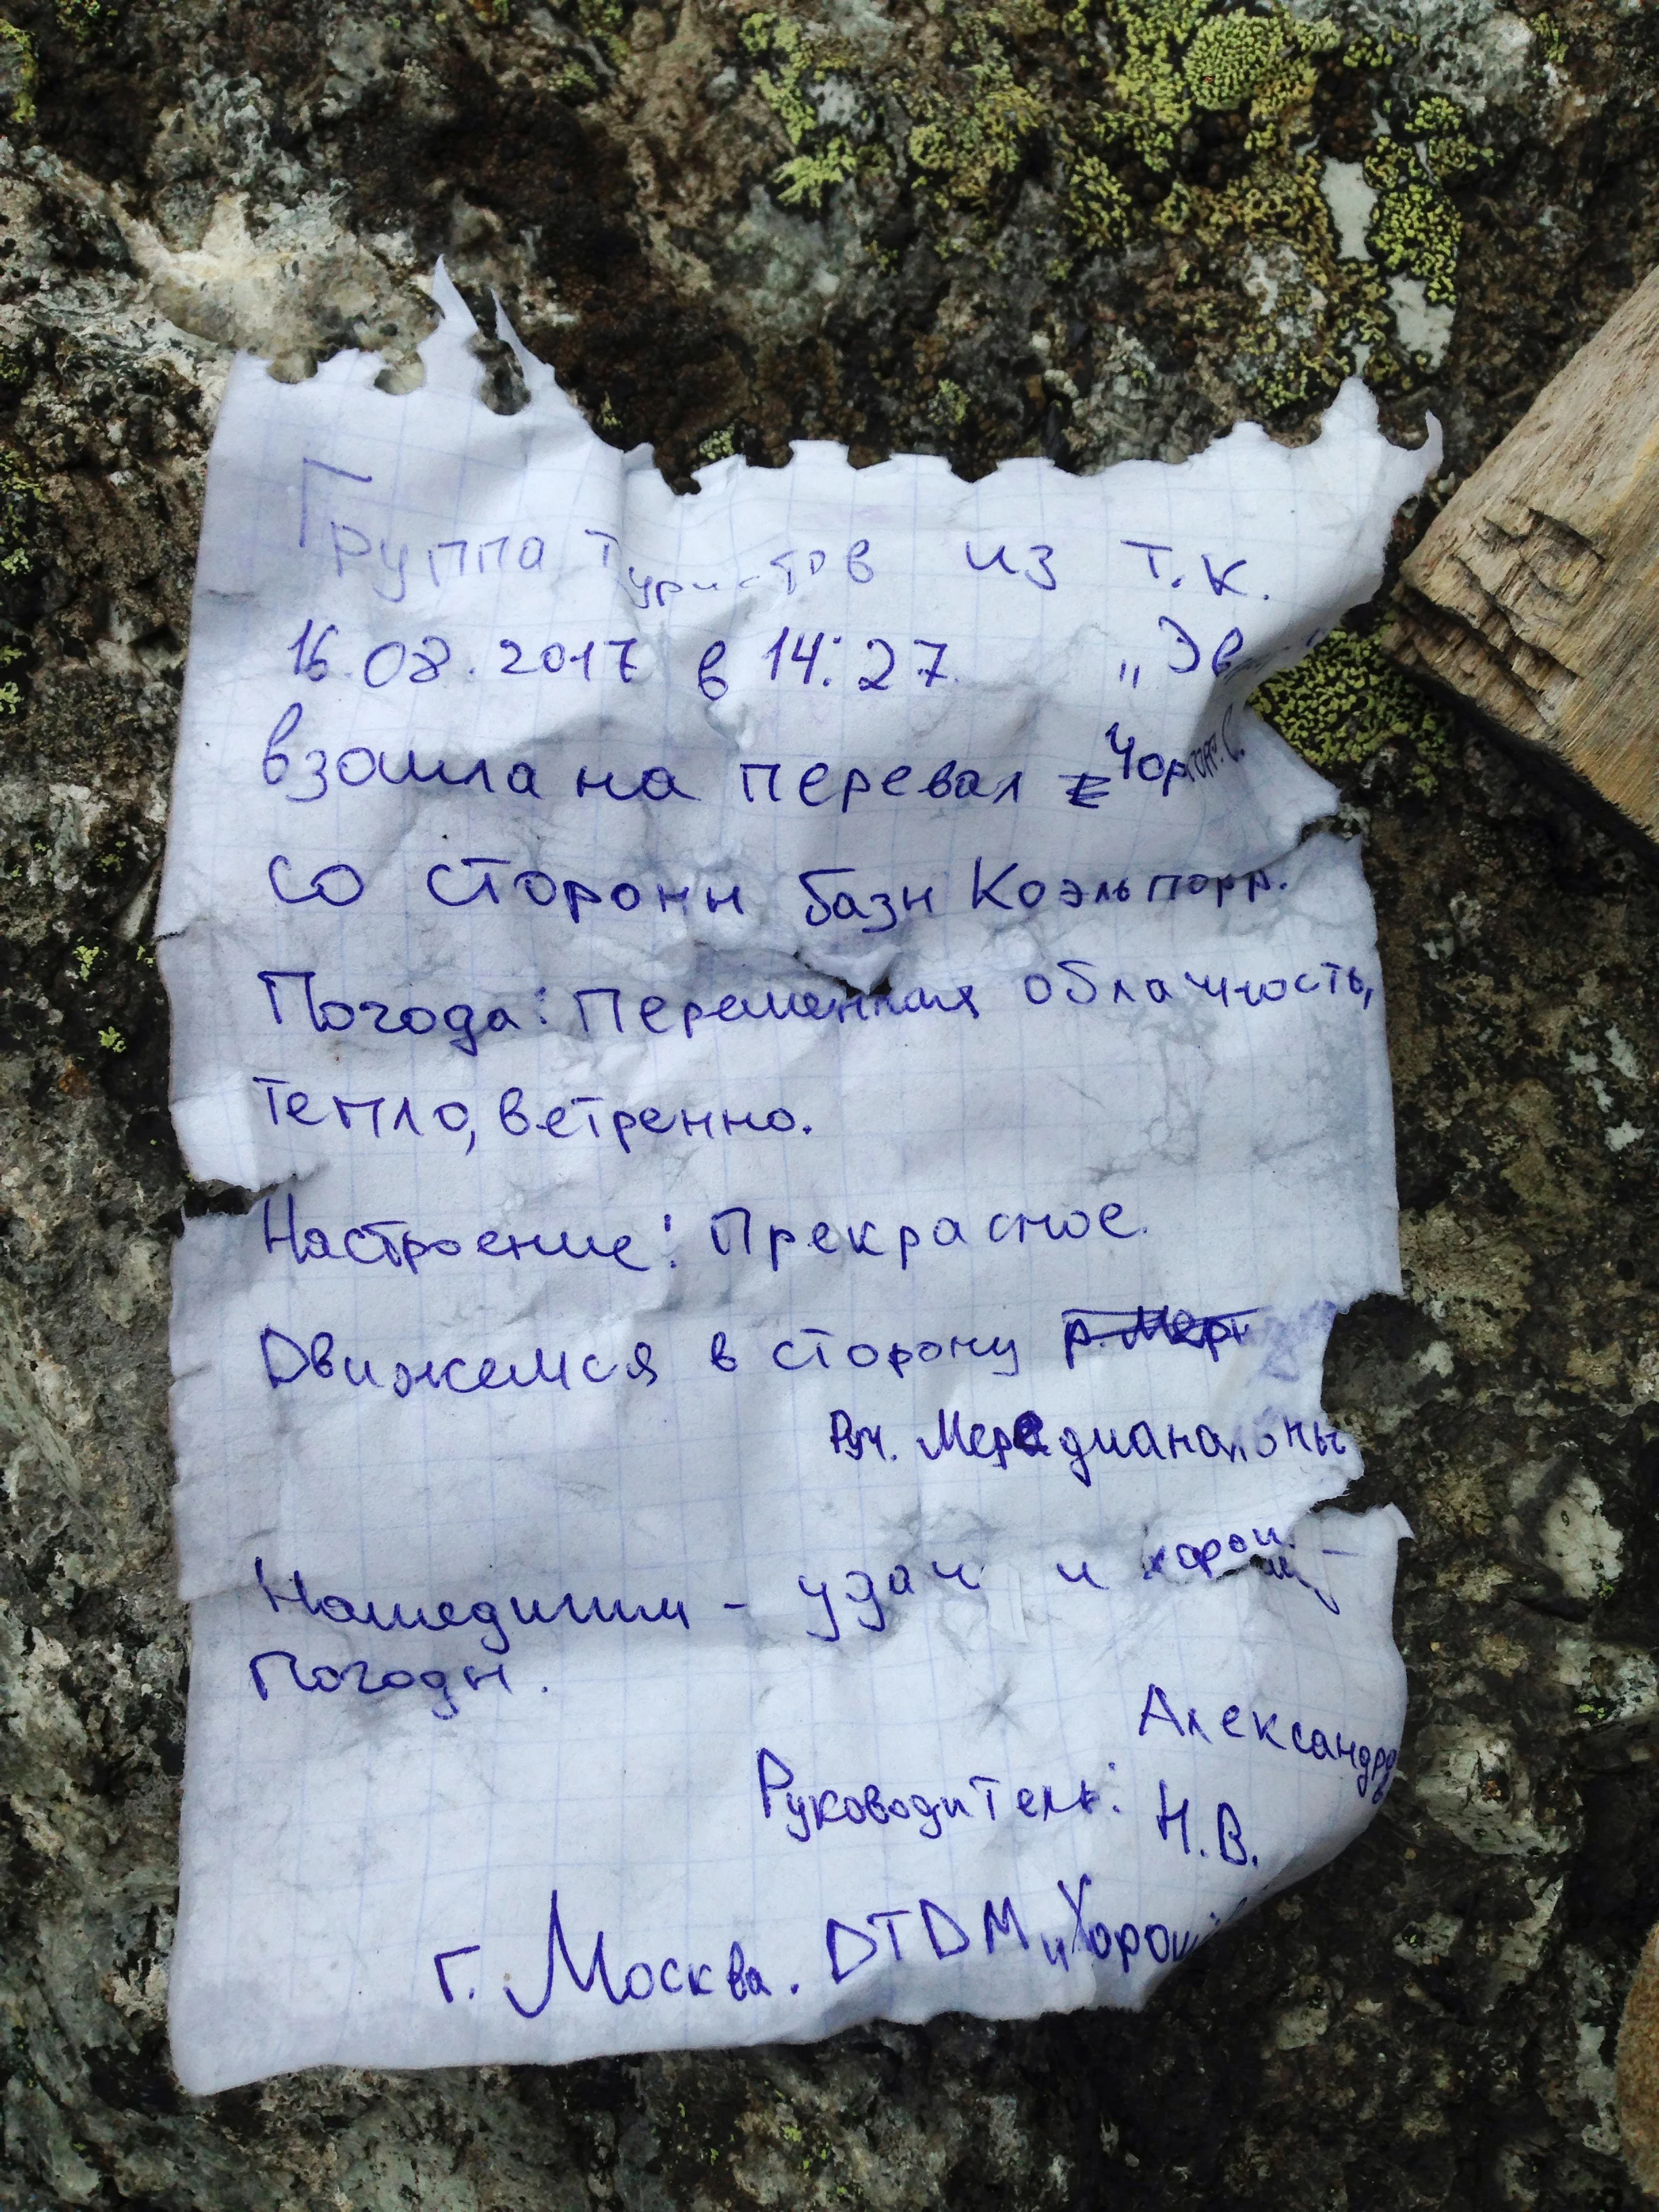 Группа туристов из т.к.
16.08.2017 в 14:27 „Эв
взошла на перевал Чоргорр. С.
со стороны базы Коэльпорр.
Погода: Переменная облачность,
тепло, ветренно.
Настроение: Прекрасное.
Движемся в сторону р. Мер
Руч. Меридианальны
Нашедшим - удачи и хорош
Погоды.
Александро
Руководитель: Н.В.
г. Москва. DTDM и Хорош